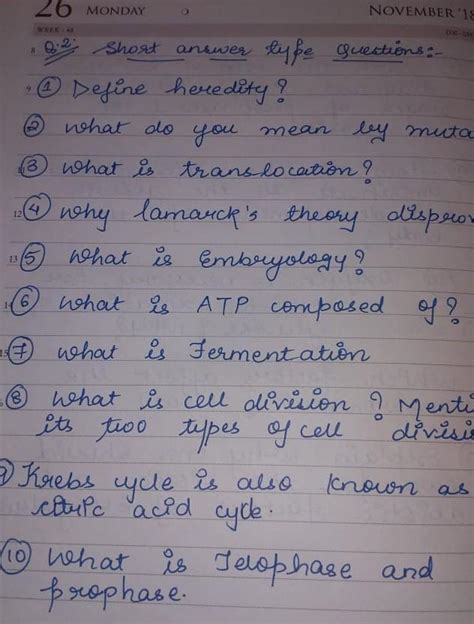 26 MONDAY NOVEMBER '18
WEEK - 48
8 Q.2. Short answer type Questions:-
9 ① Define heredity?
② What do you mean by muta
③ What is translocation?
12 ④ Why Lamarck's theory disprov
13 ⑤ What is Embryology?
14 ⑥ What is ATP composed of?
15 ⑦ What is Fermentation
⑧ What is cell division? Menti
its two types of cell divisi
9 Krebs cycle is also known as
citric acid cycle.
⑩ What is Telophase and
prophase.